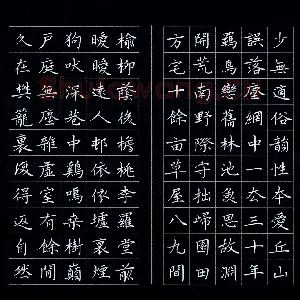 少無適俗韻性本愛丘山
誤落塵網中一去三十年
羈鳥戀舊林池魚思故淵
開荒南野際守拙歸園田
方宅十餘畝草屋八九間
榆柳蔭後檐桃李羅堂前
曖曖遠人邨依依墟裏煙
狗吠深巷中雞鳴桑樹巔
戶庭無塵雜虛室有餘閒
久在樊籠裏復得返自然